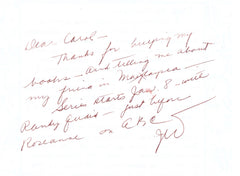 Dear Carol—
Thanks for buying my
books—and telling me about
my friend in
Series starts Jan. 8—with
Randy Quaid—just before
Roseanne on ABC
JW